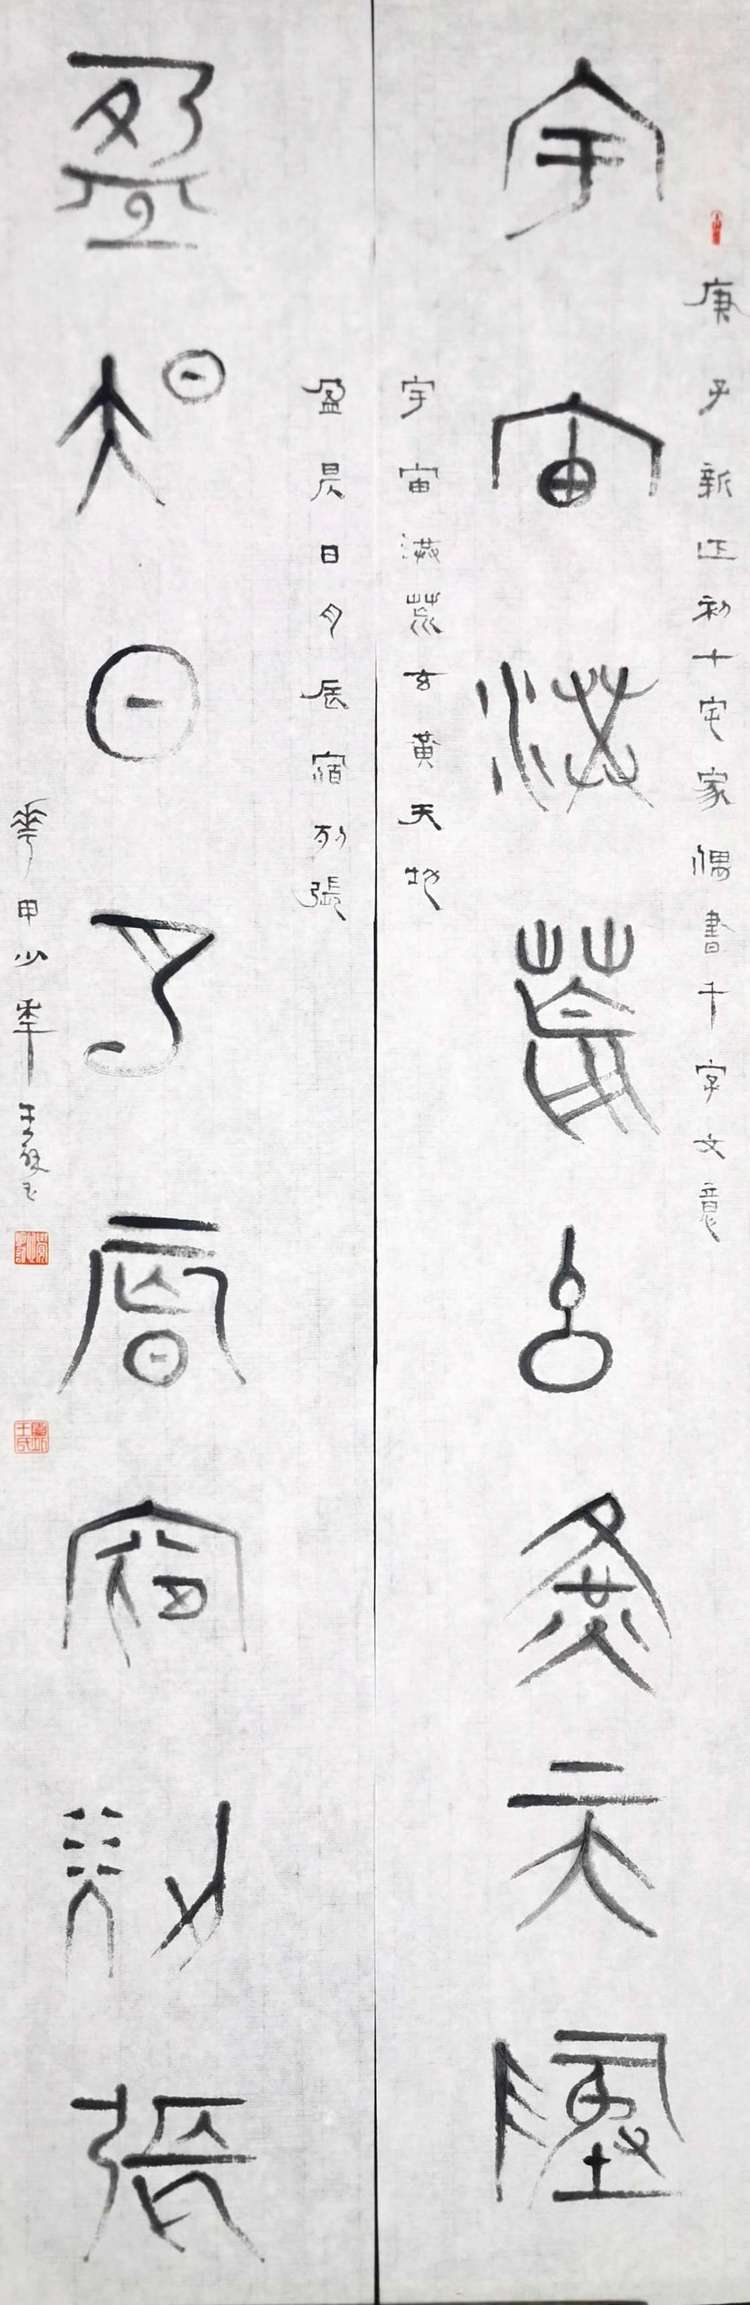 庚子新正初十宅家偶書千字文意
宇宙洪荒玄黃天地
宇宙洪荒玄黃天地
盈昃日月辰宿列張
盈昃日月辰宿列張
華甲少年